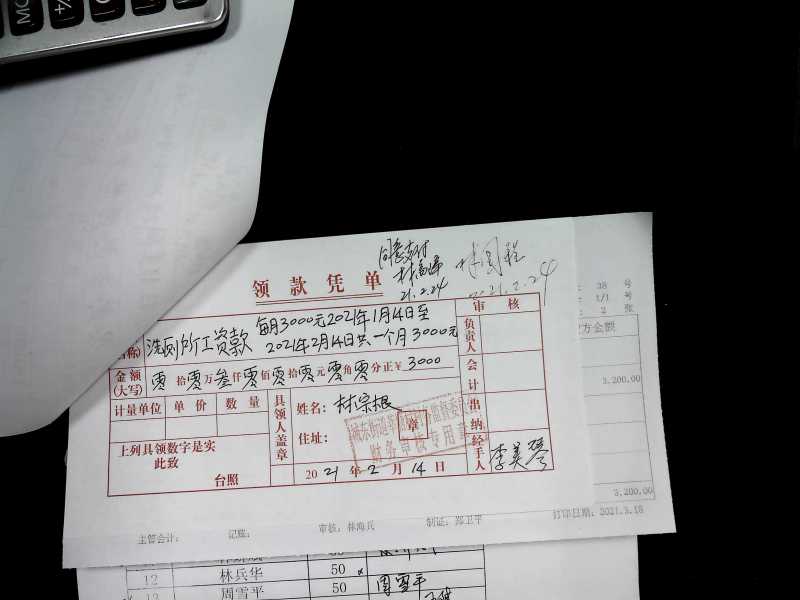 MC
+/-
同意支付
21.2.24
2021.2.24
领款凭单
审核
每月3000元2021年1月14日至
名称)
洗厕所工资款
2021年2月14日共一个月3000元
负责人
金额
(大写)
零拾零万叁仟零佰零拾零元零角零分正¥3000
会计
计量单位
单价
数量
具领人盖章
姓名:林宗根
住址:
章
出纳
财务审核专用章
上列具领数字是实
此致
台照
2021年2月14日
经手人
李美琴
38 号
1/1 号
2 张
方金额
3,200.00
3,200.00
主管会计:
记账:
审核:林海兵
制证:郑卫平
打印日期:2021.3.18
12
林兵华
50
13
周雪平
50
周雪平